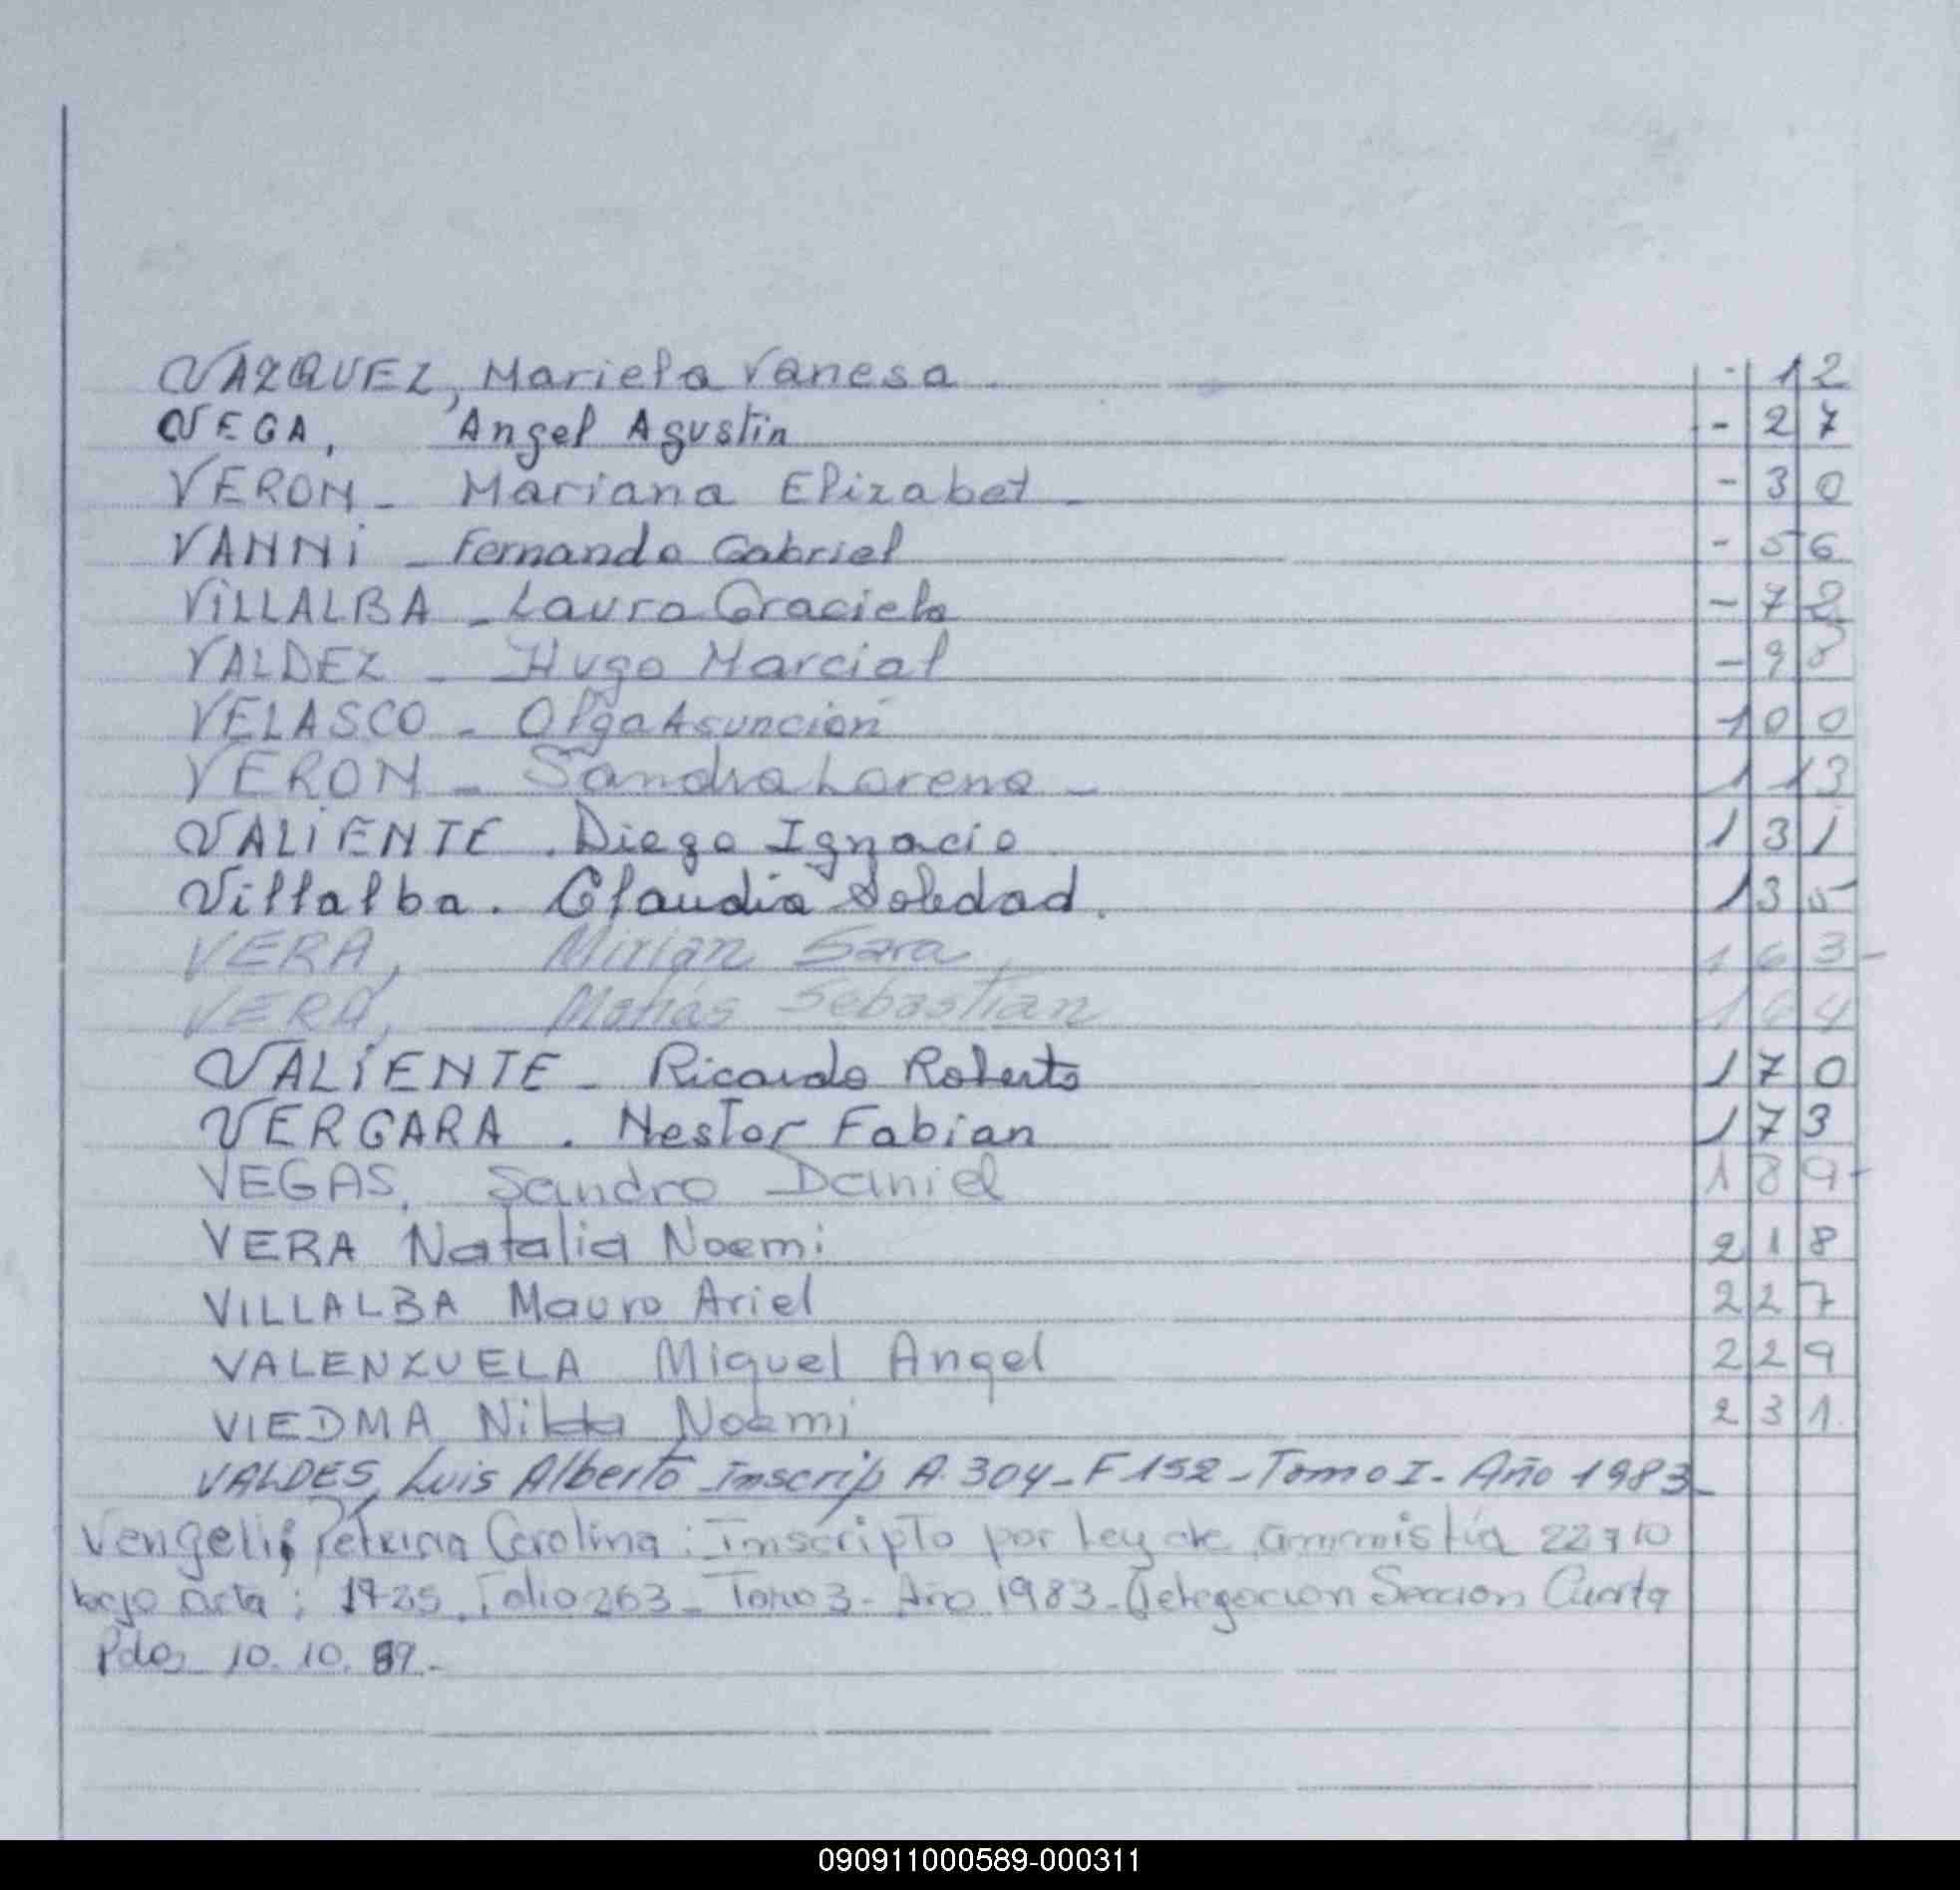 VAZQUEZ, Mariela Vanesa - 12
VEGA, Angel Agustin - 27
VERON - Mariana Elizabet - - 30
VANNi - Fernando Gabriel - 56
ViLLALBA - Laura Graciela - 72
VALDEZ - Hugo Marcial - 98
VELASCO - Olga Asunción 100
VERON - Sandra Lorena - 113
VALiENTE . Diego Ignacio 131
Villalba . Claudia Soledad . 135
VERA, Mirian Sara 163-
VERA, Matias Sebastian 164
VALiENTE - Ricardo Roberto 170
VERGARA . Nestor Fabian 173
VEGAS, Sandro Daniel 189-
VERA Natalia Noemi 218
VILLALBA Mauro Ariel 227
VALENZUELA Miguel Angel 229
VIEDMA Nilda Noemi 231.
VALDES, Luis Alberto inscrip A. 304 - F 152 - Tomo I - Año 1983 -
Vengeli, Carolina : Inscripto por Ley de ammistia
bajo acta ; Folio 263 - Tomo 3 - Año 1983 - Delegacion Seccion Cuarta
Pdas 10. 10. 89. -
090911000589-000311